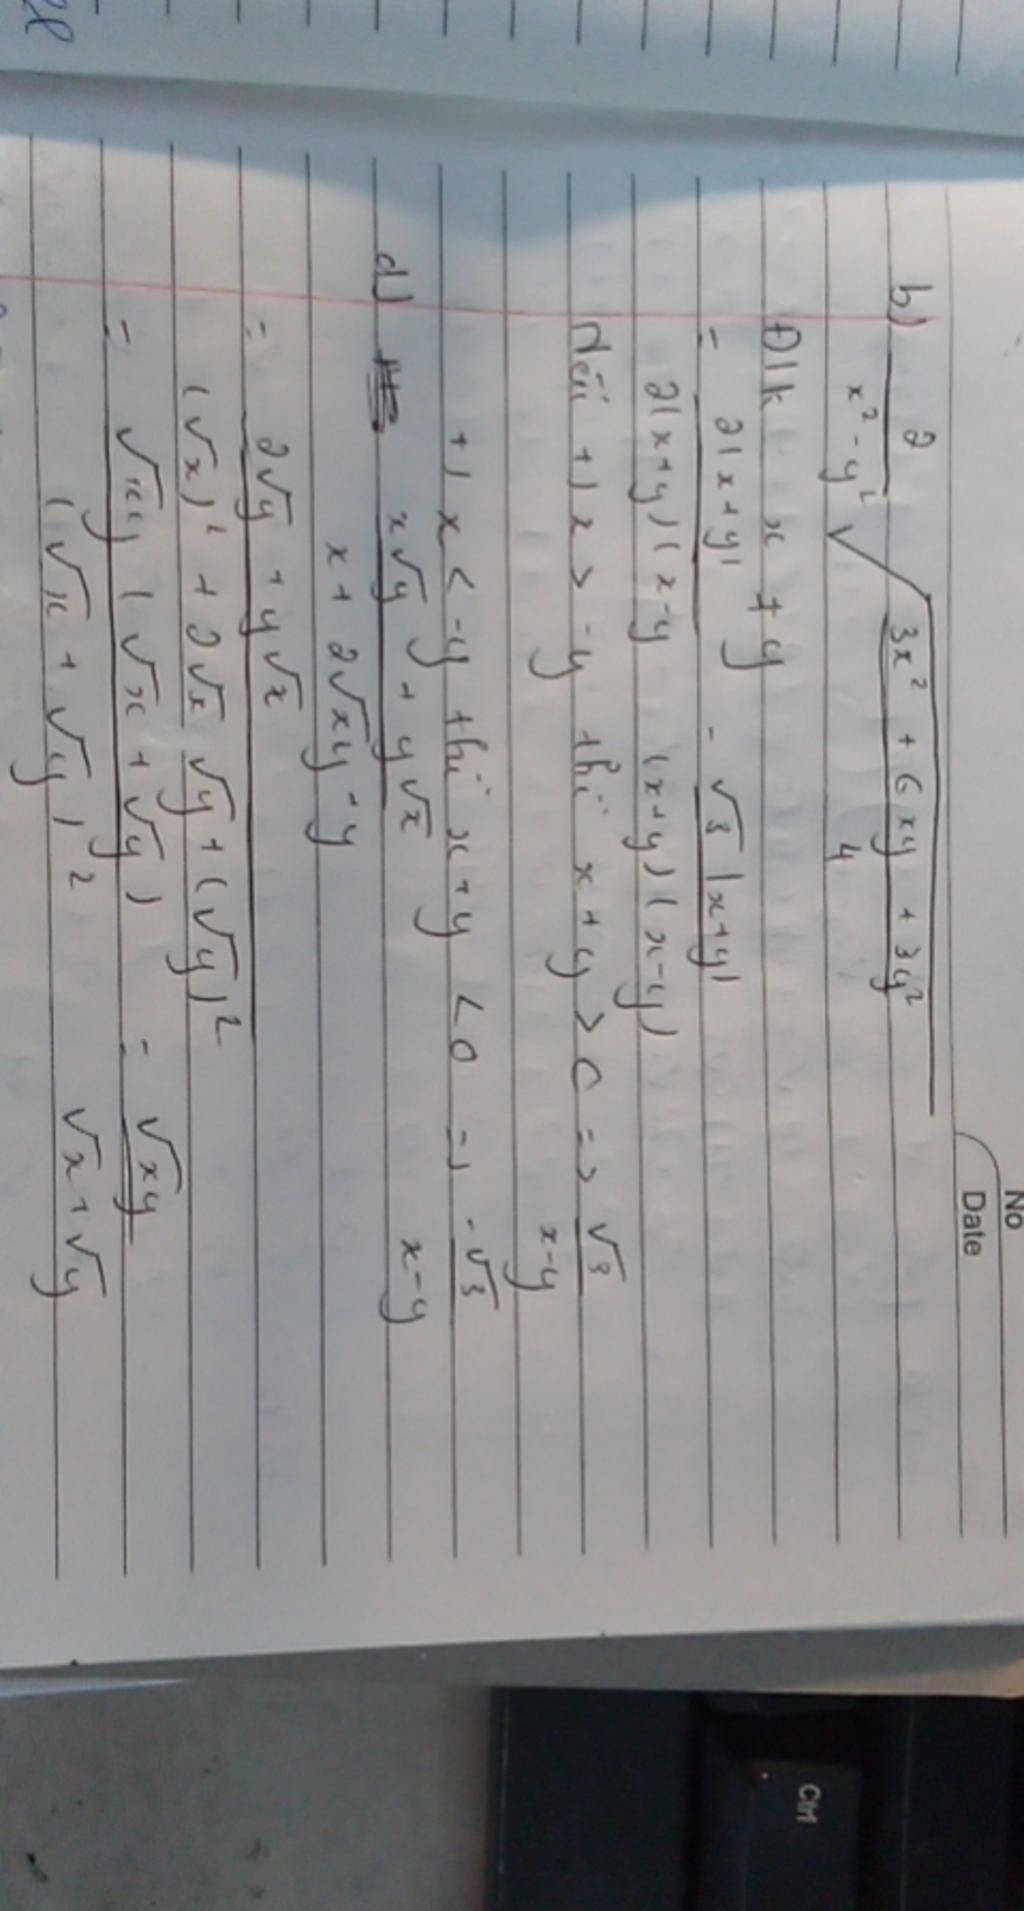 No
Date
b) 2/(x² - y²) √((3x² + 6xy + 3y²)/4)
Đlk x ≠ y
= 2|x+y|/(2(x+y)(x-y) - √3|x+y|/((x+y)(x-y))
Nếu +) x > -y thì x+y > 0 => √3/(x-y)
+) x < -y thì x+y < 0 => -√3/(x-y)
d) (x√y + y√x)/(x + 2√xy - y)
= (2√y + y√x)/((√x)² + 2√x √y + (√y)²)
= √xy (√x + √y)/(√x + √y)² = √xy/(√x + √y)
Ctrl